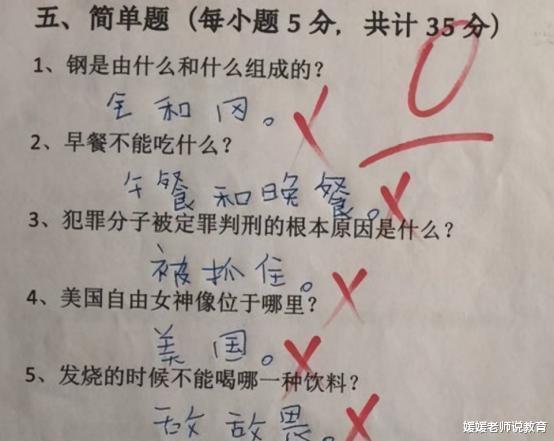 五、简单题（每小题 5 分，共计 35 分）
0
1、钢是由什么和什么组成的？
全和冈。
2、早餐不能吃什么？
午餐和晚餐。
3、犯罪分子被定罪判刑的根本原因是什么？
被抓住。
4、美国自由女神像位于哪里？
美国。
5、发烧的时候不能喝哪一种饮料？
敌敌畏。
媛媛老师说教育